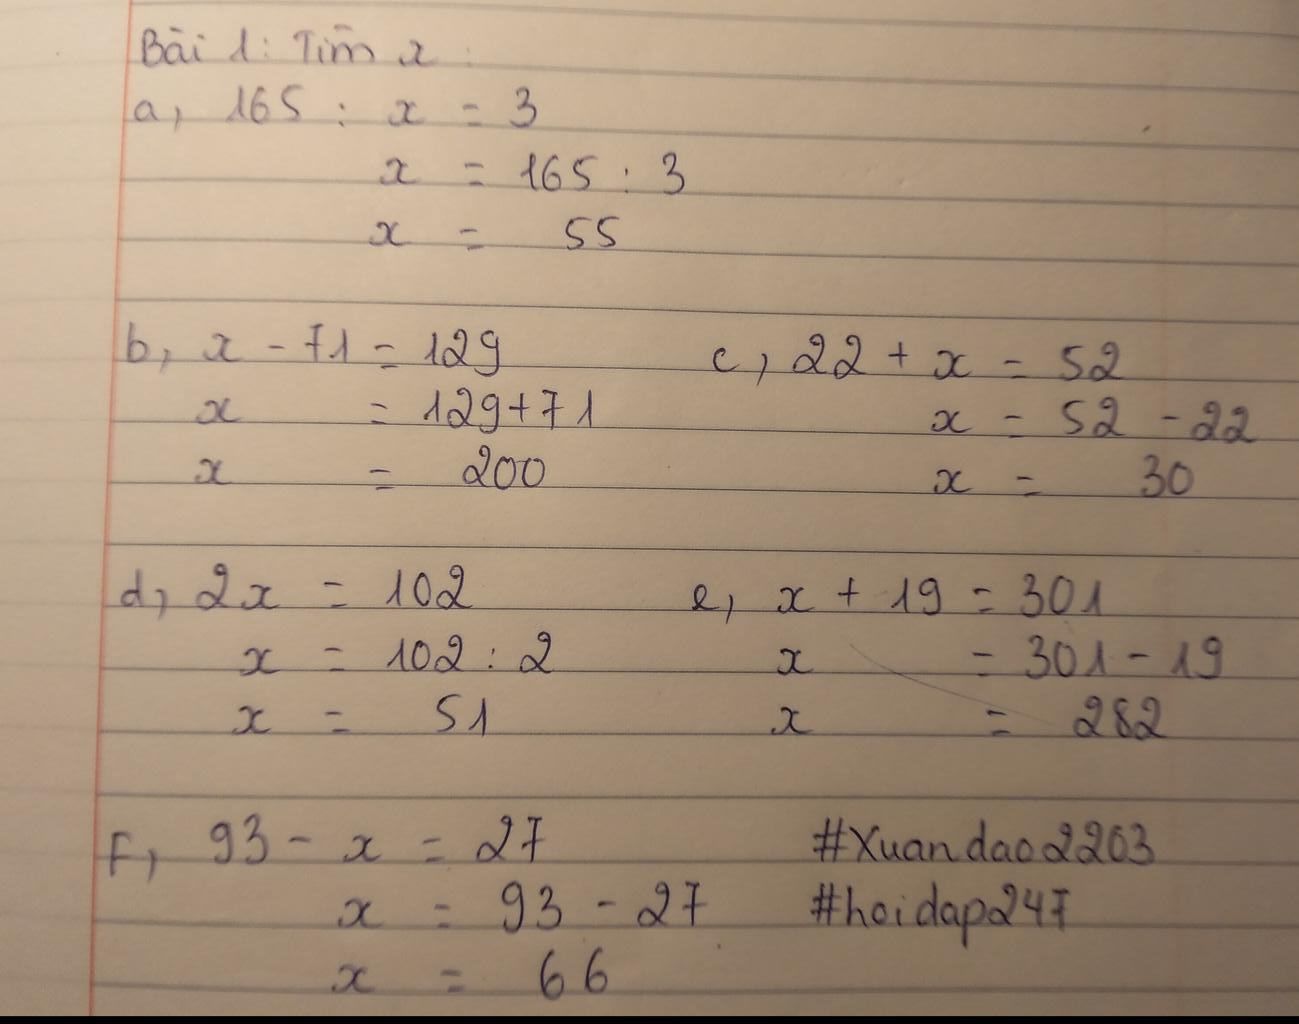 Bài 1: Tìm x:
a, 165 : x = 3
x = 165 : 3
x = 55
b, x - 71 = 129
x = 129+71
x = 200
c, 22 + x = 52
x = 52 - 22
x = 30
d, 2x = 102
x = 102 : 2
x = 51
e, x + 19 = 301
x = 301 - 19
x = 282
F, 93 - x = 27
x = 93 - 27
x = 66
#Xuandao2203
#hoidap247